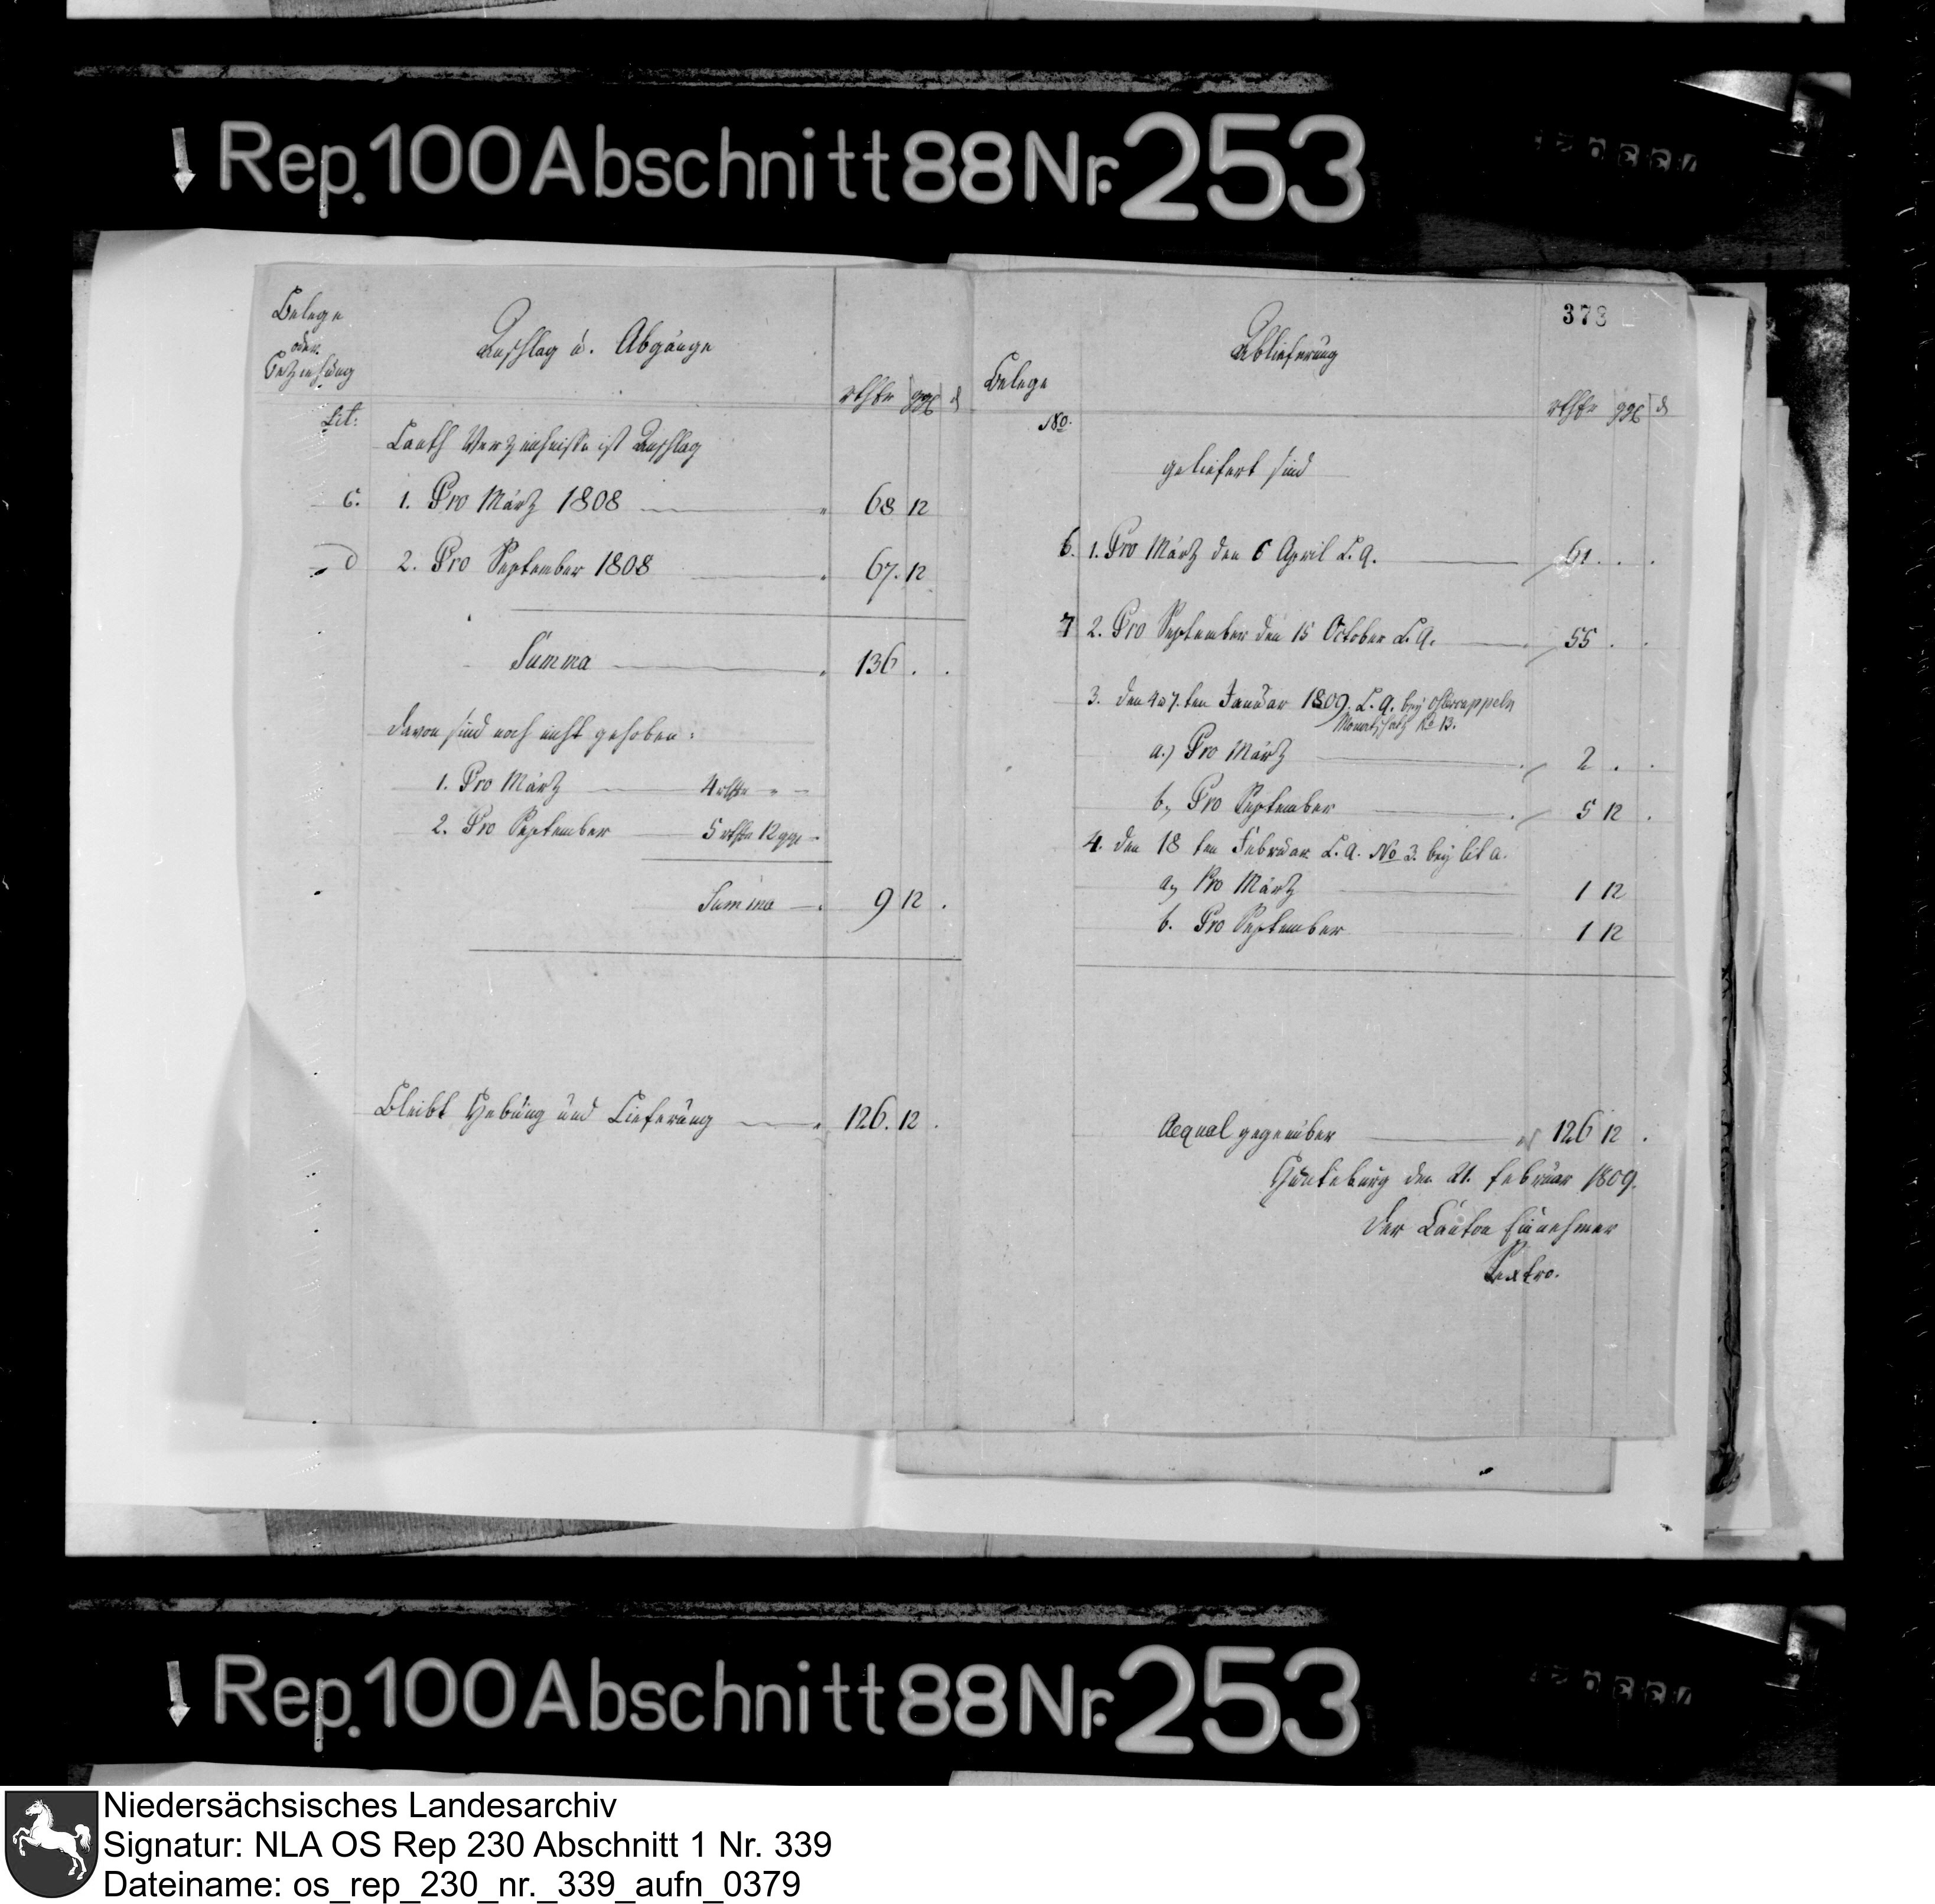 Rep. 100 Abschnitt 88 Nr. 253
Belege
oder
Beziehung
Anschlag u. Abgänge
rthlr ggr d
Lit:
Lauth Verzeichnisse ist Anschlag
c. 1. Pro März 1808 68 12
d 2. Pro September 1808 67. 12
Summa 136 . .
davon sind noch nicht gehoben:
1. Pro März 4 rthlr " -
2. Pro September 5 rthlr 12 ggr -
Summa 9 12 .
Bleibt Hebung und Lieferung 126. 12 .
373
Belege
Ablieferung
rthlr ggr d
No.
geliefert sind
6. 1. Pro März den 6 April L. q. 61 . . .
7 2. Pro September den 15 October L. q. 55 . .
3. den 4 a 7. ten Januar 1809. L. q. bey Ostercappeln
Monatschatz No 13.
a.) Pro März 2 . .
b, Pro September 5 12 .
4. den 18 ten Februar L. q. No 3. bey lit a.
a, Pro März 1 12
b. Pro September 1 12
Aequal gegenüber 126 12 .
Hünteburg den 21. Februar 1809.
Der Canton Einnehmer
Sextro.
Rep. 100 Abschnitt 88 Nr. 253
Niedersächsisches Landesarchiv
Signatur: NLA OS Rep 230 Abschnitt 1 Nr. 339
Dateiname: os_rep_230_nr._339_aufn_0379